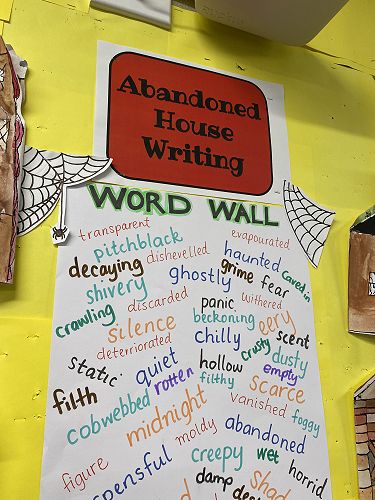 Abandoned
House
Writing
WORD WALL
transparent
evapourated
pitchblack
dishevelled
haunted
caved in
decaying
ghostly
grime
fear
shivery
discarded
panic
withered
crawling
silence
beckoning
eery
deteriorated
chilly
scent
static
quiet
hollow
crusty
dusty
filth
rotten
filthy
empty
scarce
cobwebbed
midnight
vanished
foggy
moldy
abandoned
figure
creepy
wet
horrid
damp